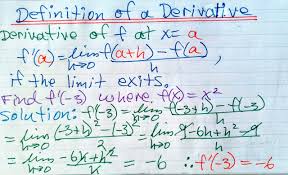 Definition of a Derivative
Derivative of f at x= a
f'(a)=lim h→0 f(a+h)-f(a)/h,
if the limit exits.
Find f'(-3) where f(x)=x²
Solution: f'(-3)=lim h→0 f(-3+h)-f(-3)/h
=lim h→0 (-3+h)²-(-3)²/h=lim h→0 9-6h+h²-9/h
=lim h→0 -6h+h²/h = -6 ∴f'(-3)=-6